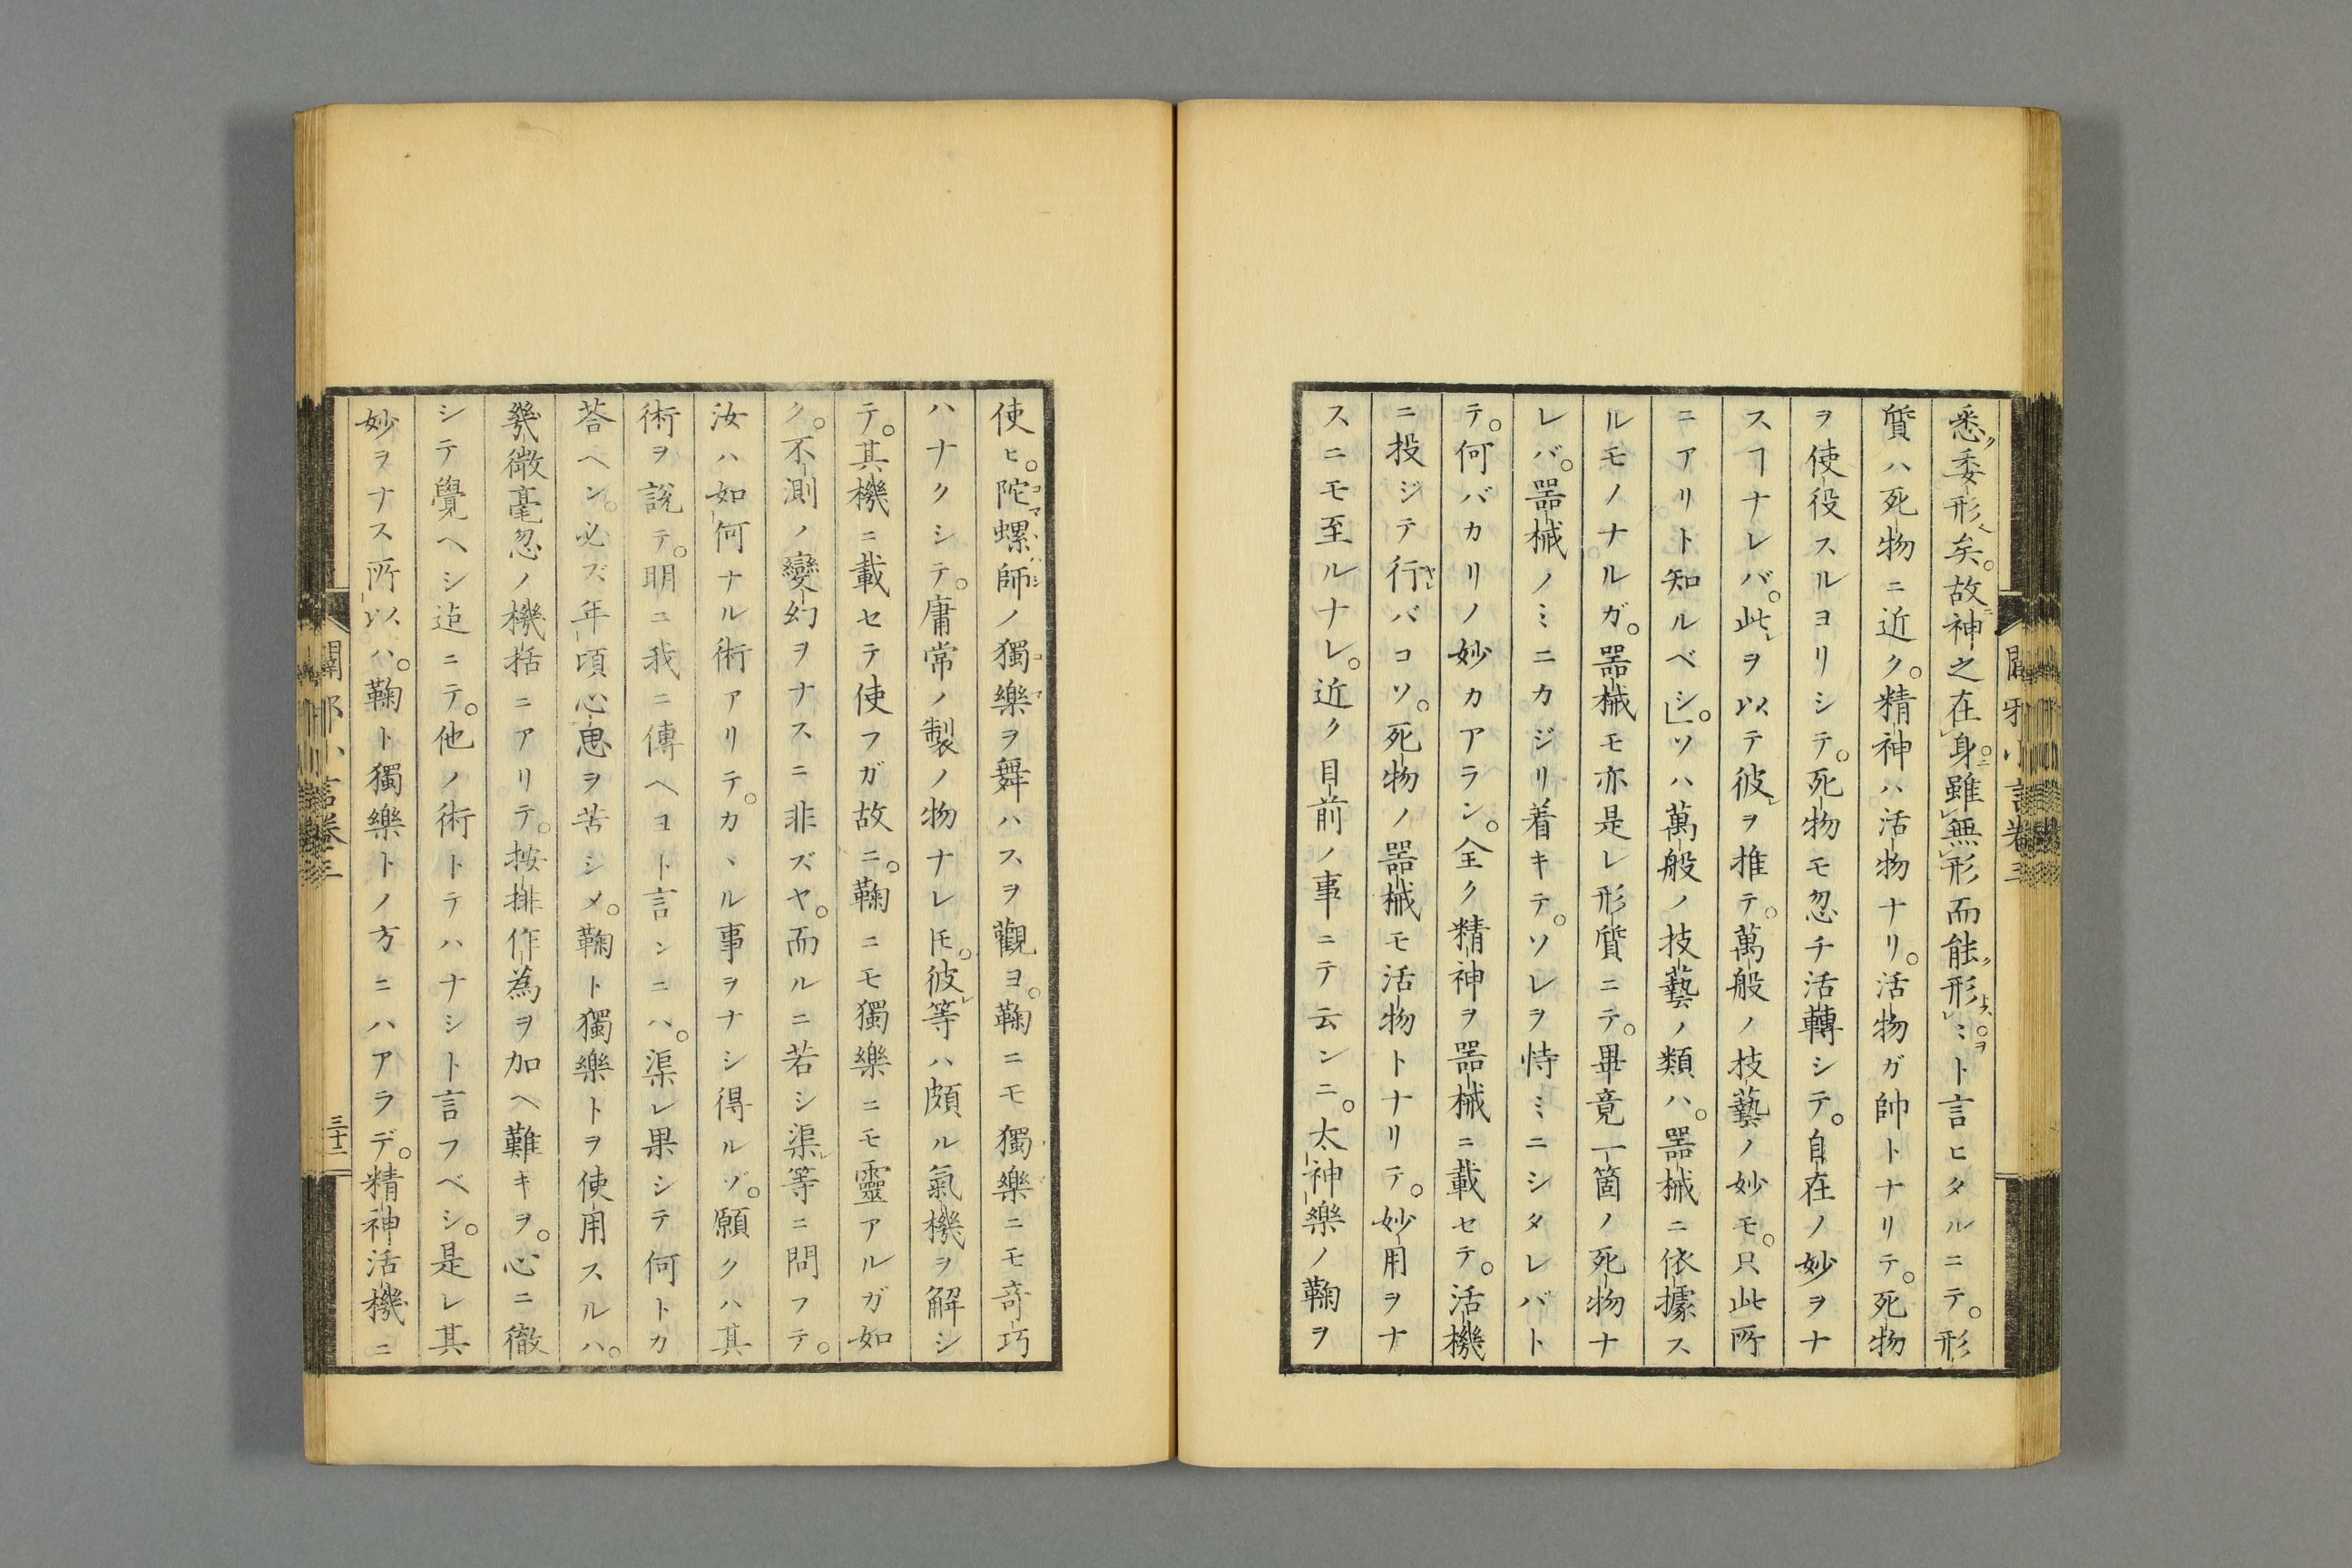 悉委形矣。故神之在身。雖無形而能形ミト言ヒタルニテ。形
質ハ死物ニ近ク。精神ハ活物ナリ。活物ガ帥トナリテ。死物
ヲ使役スルヨリシテ。死物モ忽チ活轉シテ。自在ノ妙ヲナ
スヿナレバ。此ヲ以テ彼ヲ推テ。萬般ノ技藝ノ妙モ。只此所
ニアリト知ルベシ」。ソハ萬般ノ技藝ノ類ハ。噐械ニ依據ス
ルモノナルガ。噐械モ亦是レ形質ニテ。畢竟一箇ノ死物ナ
レバ。噐械ノミニカジリ着キテ。ソレヲ恃ミニシタレバト
テ。何バカリノ妙カアラン。全ク精神ヲ噐械ニ載セテ。活機
ニ投ジテ行バコソ。死物ノ噐械モ活物トナリテ。妙用ヲナ
スニモ至ルナレ。近ク目前ノ事ニテ云ンニ。太神樂ノ鞠ヲ
使ヒ。陀螺師ノ獨樂ヲ舞ハスヲ觀ヨ。鞠ニモ獨樂ニモ竒巧
ハナクシテ。庸常ノ製ノ物ナレ𪜈。彼等ハ頗ル氣機ヲ解シ
テ。其機ニ載セテ使フガ故ニ。鞠ニモ獨樂ニモ靈アルガ如
ク。不測ノ變幻ヲナスニ非ズヤ。而ルニ若シ渠等ニ問フテ。
汝ハ如何ナル術アリテ。カヽル事ヲナシ得ルゾ。願クハ其
術ヲ説テ。明ニ我ニ傳ヘヨト言ンニハ。渠レ果シテ何トカ
荅ヘン。必ズ年頃心思ヲ苦シメ。鞠ト獨樂トヲ使用スルハ。
幾微毫忽ノ機括ニアリテ。按排作為ヲ加ヘ難キヲ。心ニ徹
シテ覺ヘシ迄ニテ。他ノ術トテハナシト言フベシ。是レ其
妙ヲナス所以ハ。鞠ト獨樂トノ方ニハアラデ。精神活機ニ
三十二